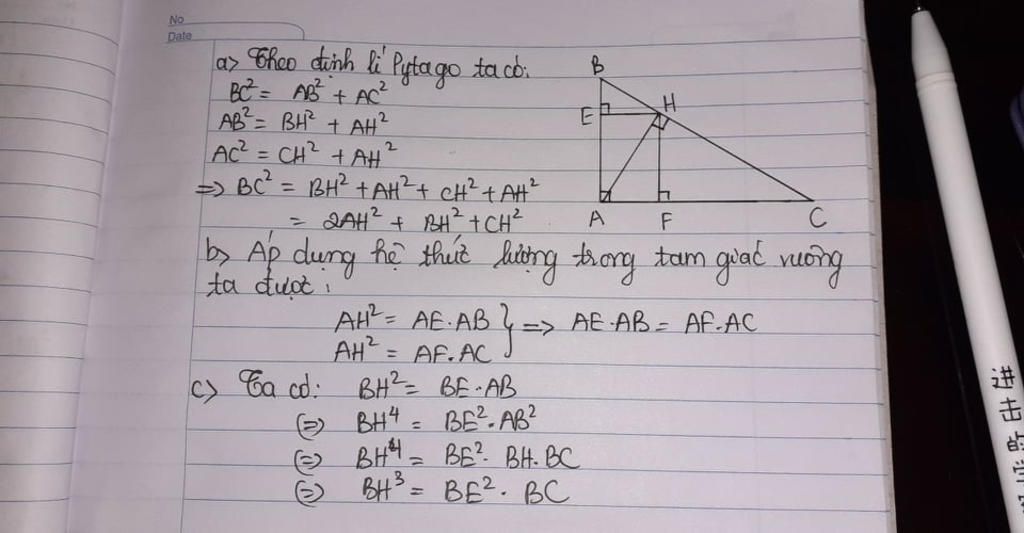 No
Date
a> Theo định lí Pytago ta có:
BC² = AB² + AC²
AB² = BH² + AH²
AC² = CH² + AH²
=> BC² = BH² + AH² + CH² + AH²
= 2AH² + BH² + CH²
B
E
H
A
F
C
b> Áp dụng hệ thức lượng trong tam giác vuông
ta được:
AH² = AE.AB } => AE.AB = AF.AC
AH² = AF.AC
c) Ta có: BH² = BE.AB
(=) BH⁴ = BE².AB²
(=) BH⁴ = BE². BH.BC
(=) BH³ = BE². BC
进击的学